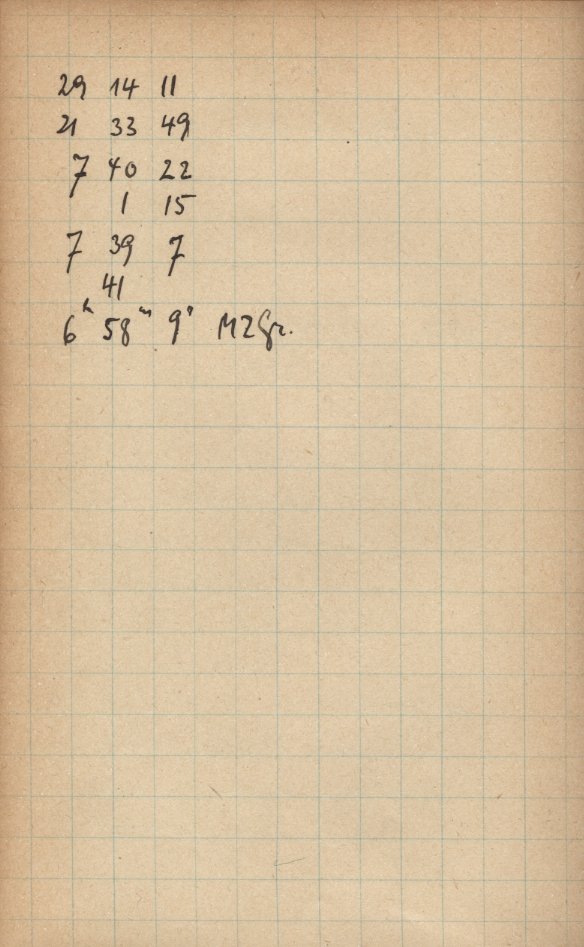 29 14 11
21 33 49
7 40 22
1 15
7 39 7
41
6h 58m 9s MZGr.